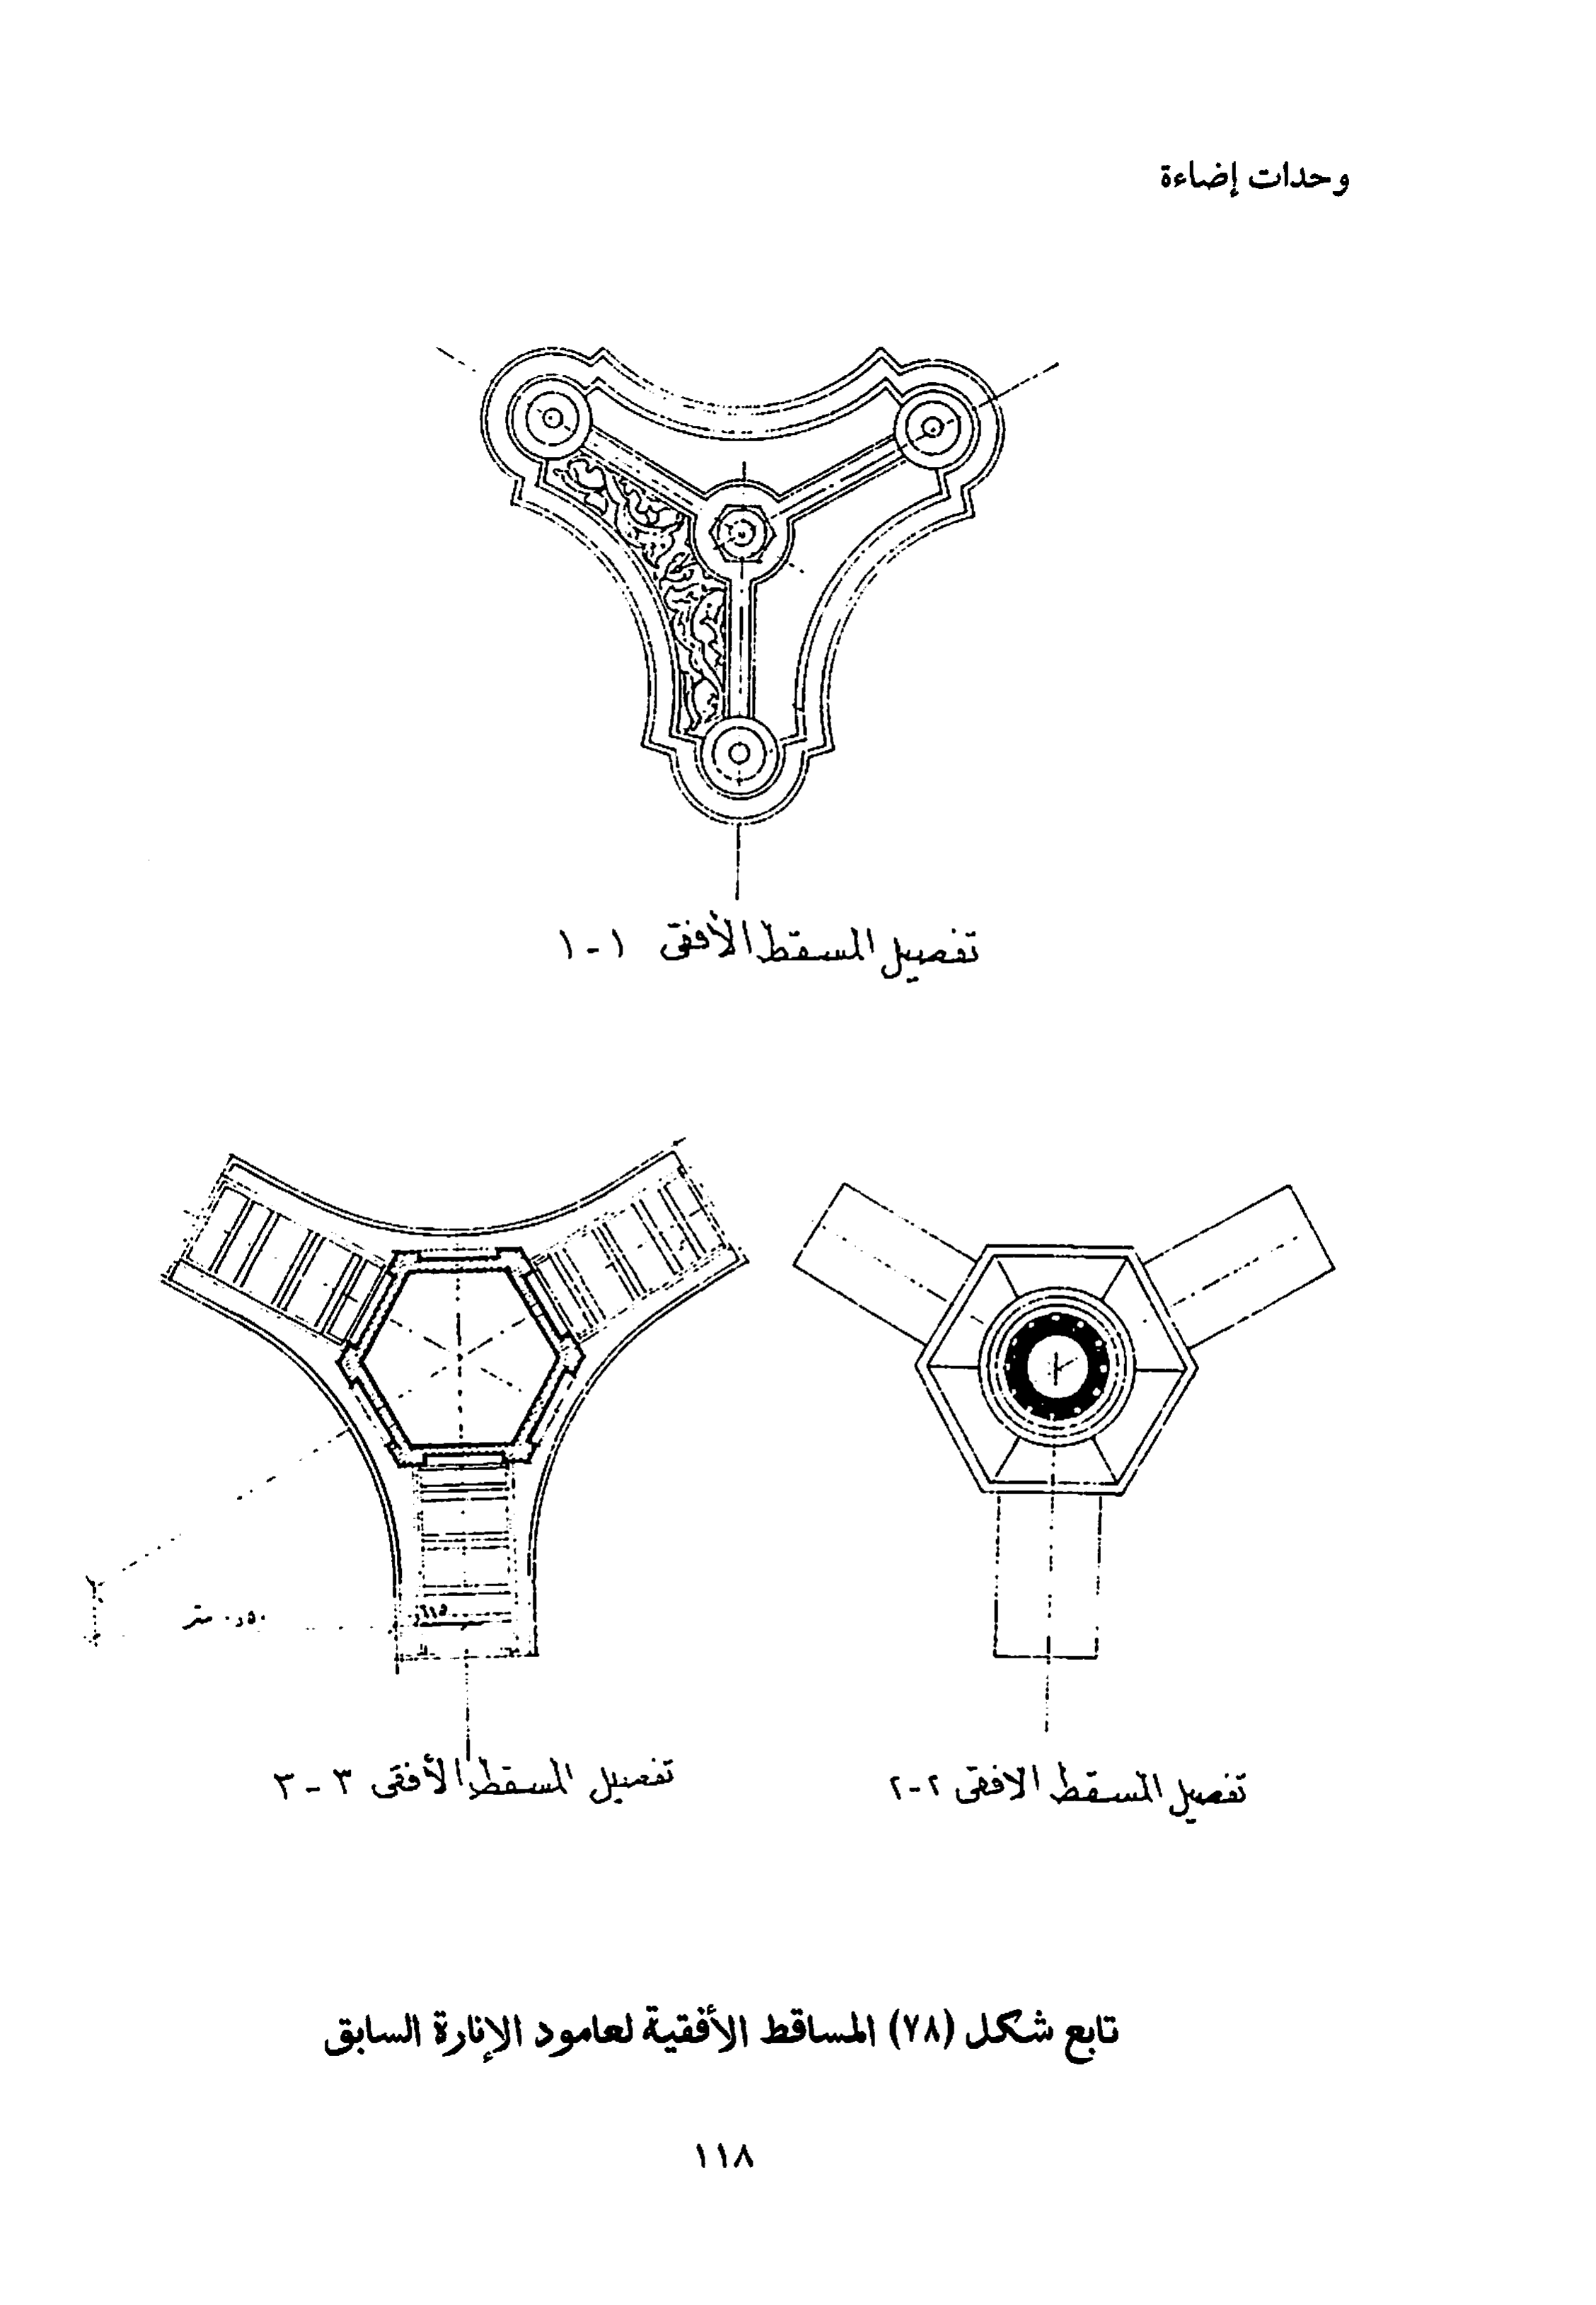 وحدات إضاءة
تفصيل المسقط الأفقى ١-١
تفصيل المسقط الافقى ٢-٢
تفصيل المسقط الأفقى ٣-٣
٠,٥٠ متر
تابع شكل (٧٨) المساقط الأفقية لعامود الإنارة السابق
١١٨